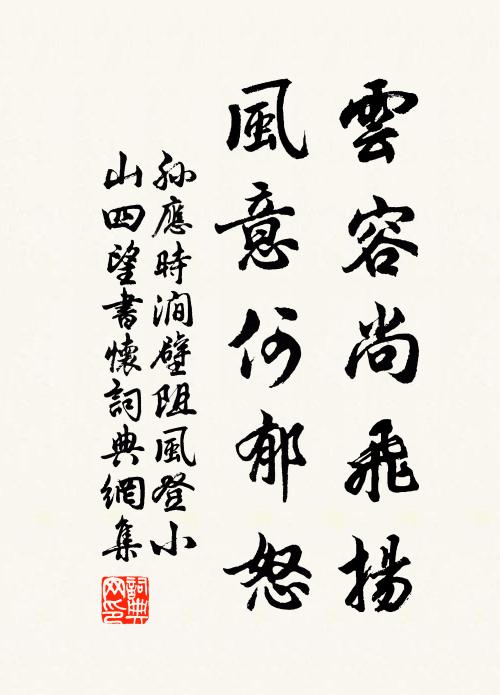 雲容尚飛揚
風意何郁怒
孫應時澗壁阻風登小
山四望書懷詞典網集
詞典
网印